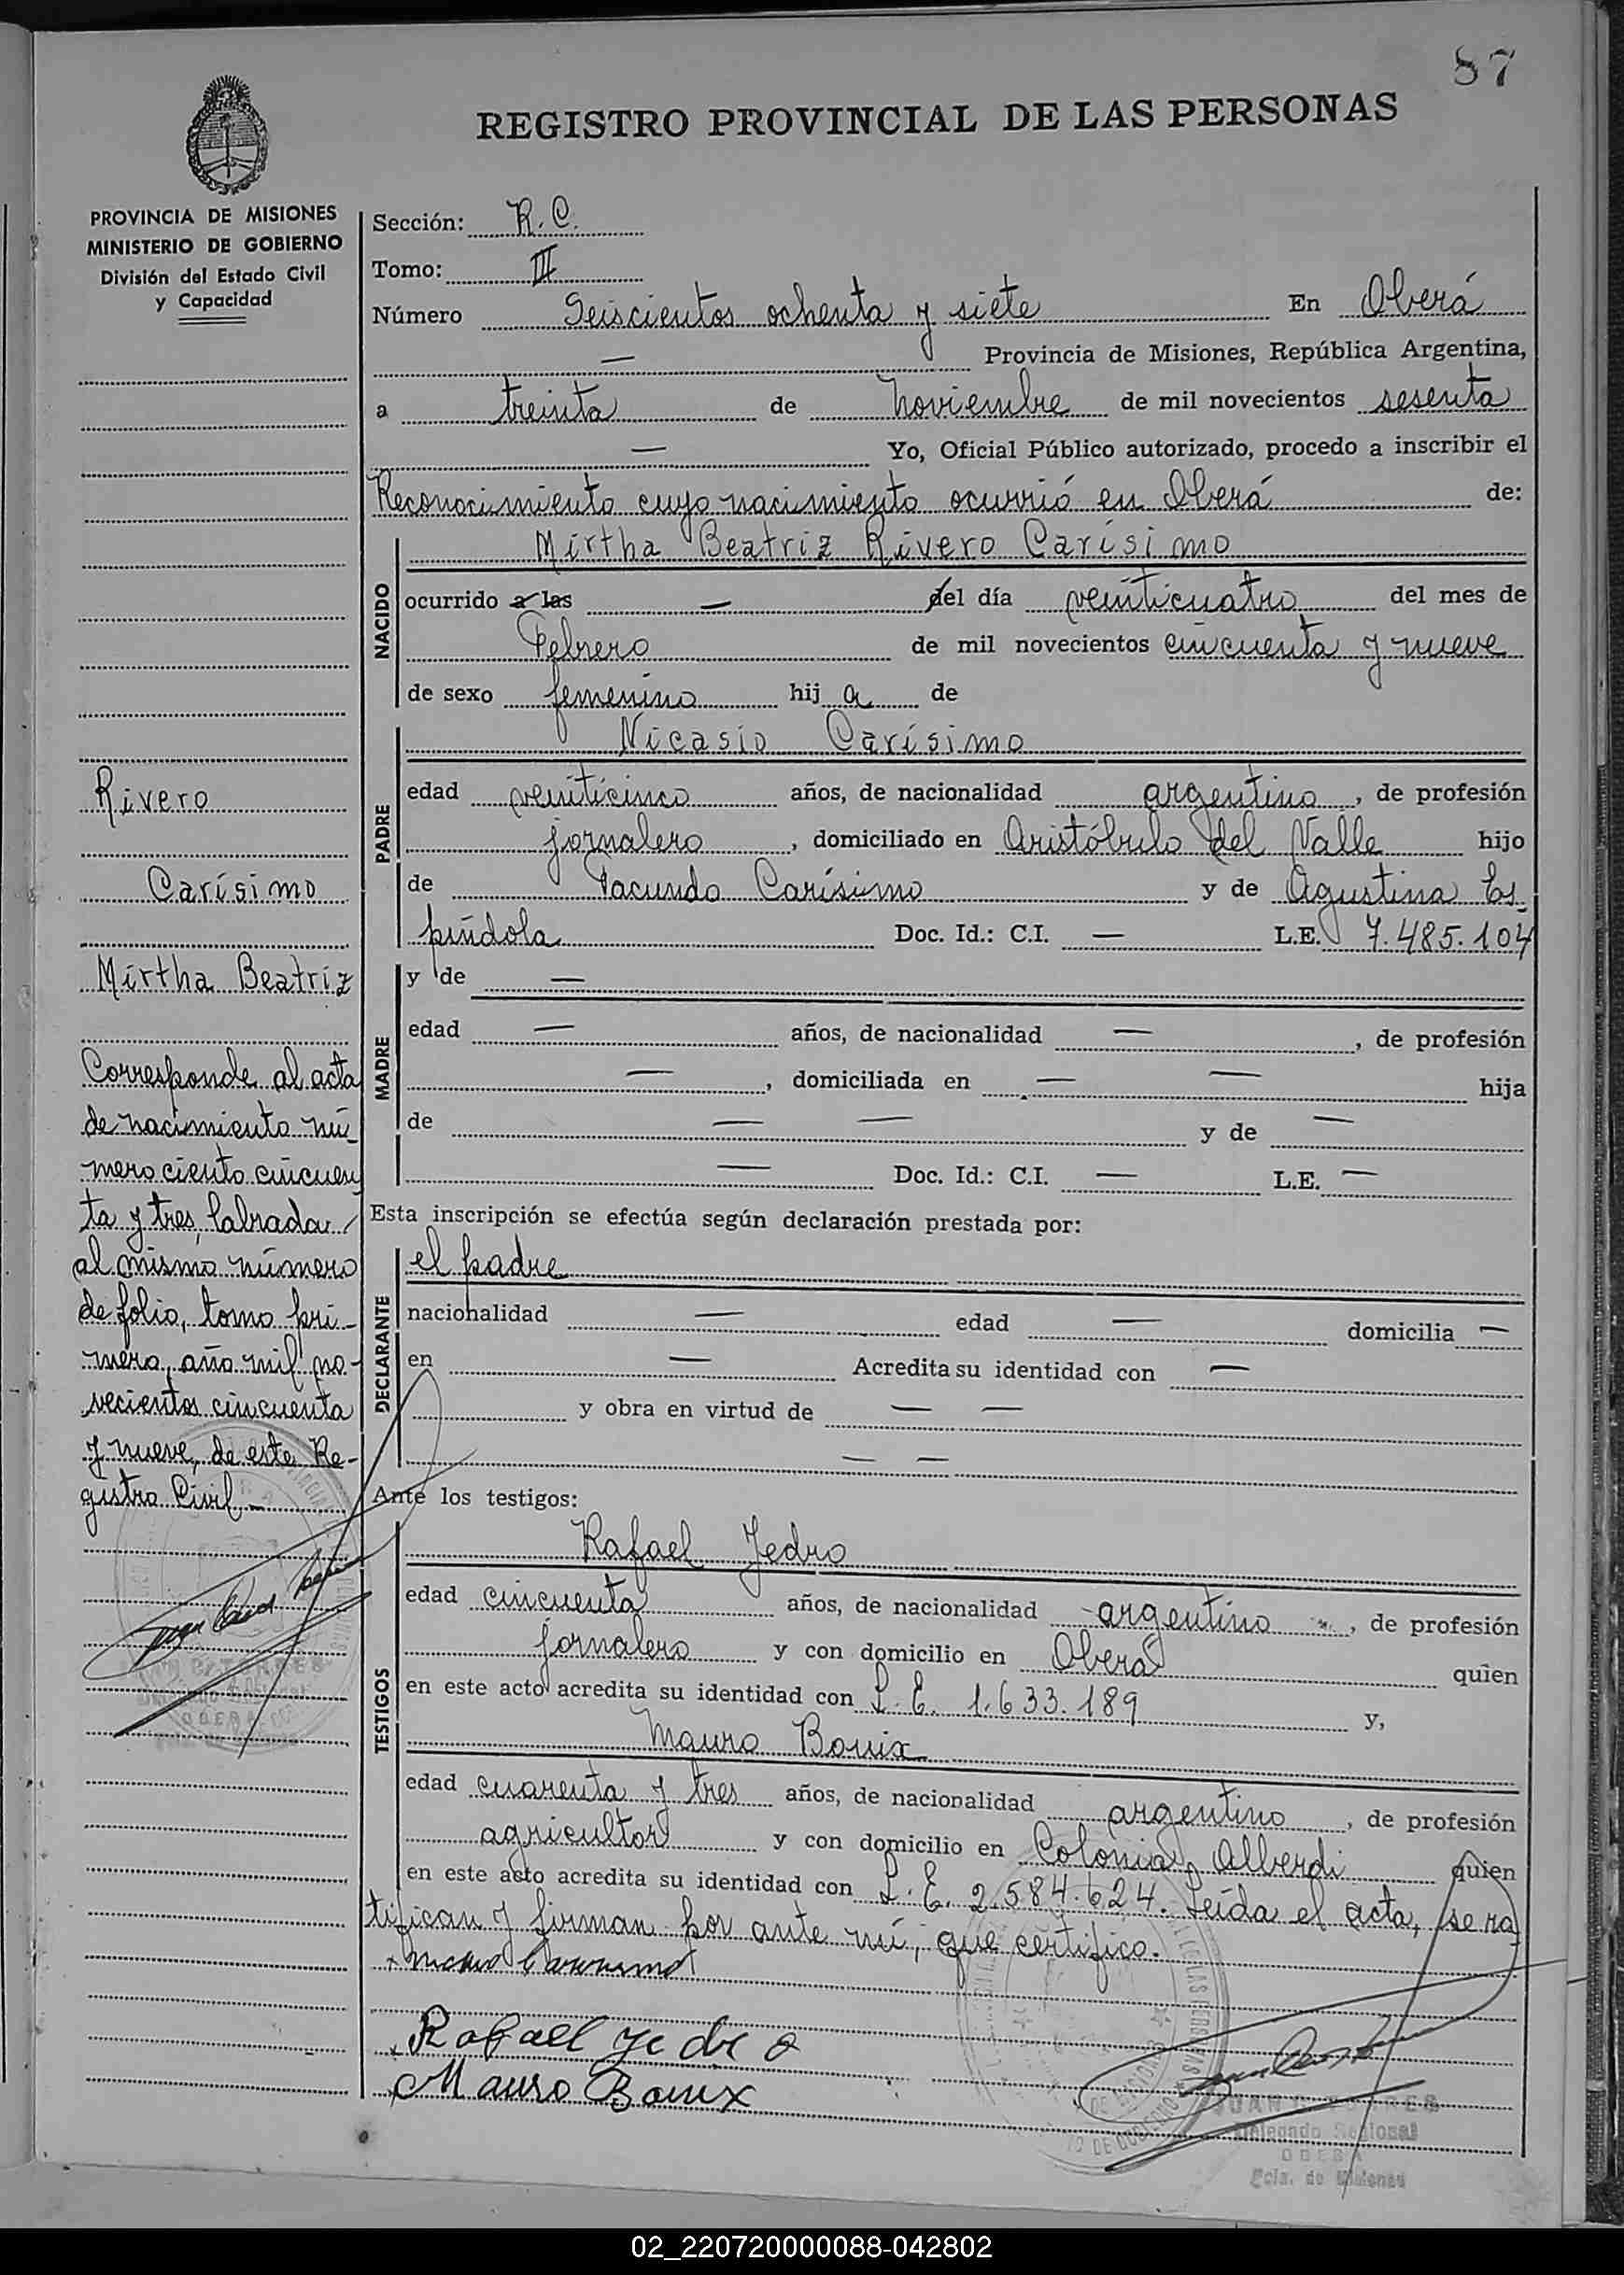 87
REGISTRO PROVINCIAL DE LAS PERSONAS
PROVINCIA DE MISIONES
MINISTERIO DE GOBIERNO
División del Estado Civil
y Capacidad
Rivero
Carísimo
Mirtha Beatriz
Corresponde al acta
de nacimiento nú-
mero ciento cincuen
ta y tres, labrada
al mismo número
de folio, tomo pri-
mero, año mil no-
vecientos cincuenta
y nueve, de este Re-
gistro Civil.-
Sección: R.C.
Tomo: II
Número Seiscientos ochenta y siete En Oberá
— Provincia de Misiones, República Argentina,
a treinta de Noviembre de mil novecientos sesenta
— Yo, Oficial Público autorizado, procedo a inscribir el
Reconocimiento cuyo nacimiento ocurrió en Oberá de:
NACIDO
Mirtha Beatriz Rivero Carísimo
ocurrido a las — del día veinticuatro del mes de
Febrero de mil novecientos cincuenta y nueve
de sexo femenino hij a de
PADRE
Nicasio Carísimo
edad veinticinco años, de nacionalidad argentino, de profesión
jornalero, domiciliado en Aristóbulo del Valle hijo
de Facundo Carísimo y de Agustina Es-
píndola Doc. Id.: C.I. — L.E. 7.485.104
MADRE
y de —
edad — años, de nacionalidad —, de profesión
—, domiciliada en — — hija
de — — y de —
— Doc. Id.: C.I. — L.E. —
Esta inscripción se efectúa según declaración prestada por:
DECLARANTE
el padre
nacionalidad — edad — domicilia —
en — Acredita su identidad con —
y obra en virtud de — —
— —
Ante los testigos:
TESTIGOS
Rafael Yedro
edad cincuenta años, de nacionalidad argentino, de profesión
jornalero y con domicilio en Oberá quien
en este acto acredita su identidad con L.E. 1.633.189 y,
Mauro Bouix
edad cuarenta y tres años, de nacionalidad argentino, de profesión
agricultor y con domicilio en Colonia Alberdi quien
en este acto acredita su identidad con L.E. 2.584.624. Leída el acta, se ra
tifican y firman por ante mí, que certifico.
Rafael Yedro
Mauro Bouix
JUAN C. TORRES
Delegado Regional
OBERA
Pcia. de Misiones
02_220720000088-042802